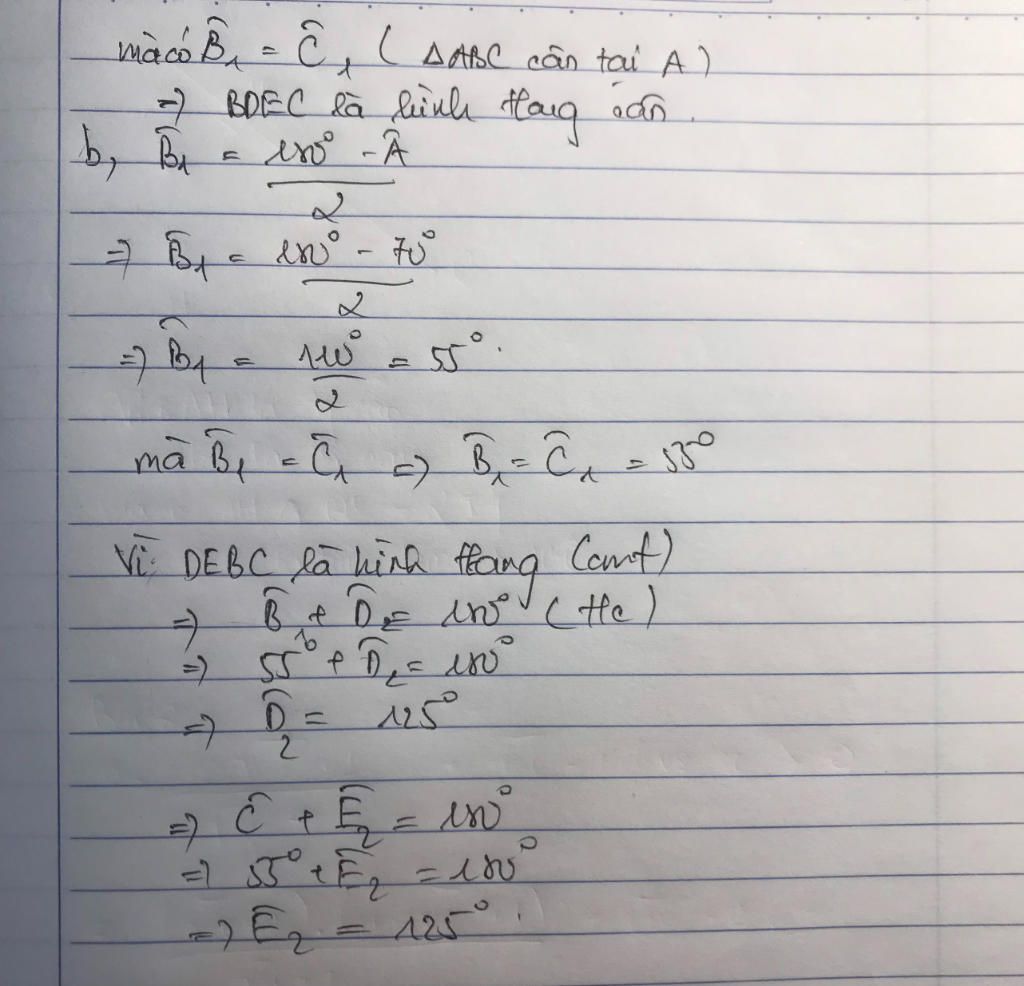 mà có B̂₁ = Ĉ₁ ( ΔABC cân tại A )
=> BDEC là hình thang cân.
b, B̂₁ = (180° - Â)/2
=> B̂₁ = (180° - 70°)/2
=> B̂₁ = 110°/2 = 55°.
mà B̂₁ = Ĉ₁ => B̂₁ = Ĉ₁ = 55°
Vì DEBC là hình thang (cmt)
=> B̂₁ + D̂₂ = 180° ( ttc )
=> 55° + D̂₂ = 180°
=> D̂₂ = 125°
=> Ĉ + Ê₂ = 180°
=> 55° + Ê₂ = 180°
=> Ê₂ = 125°.